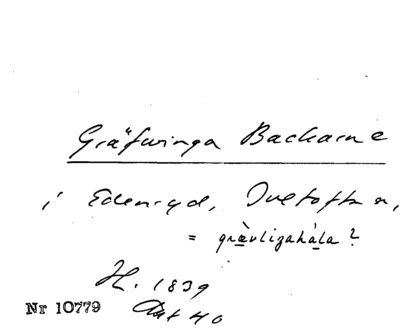 Gräfwinga Backarne
i Edenryd, Ivetofta n,
= grævlizahála ?
H. 1839
Akt 40
Nr 10779